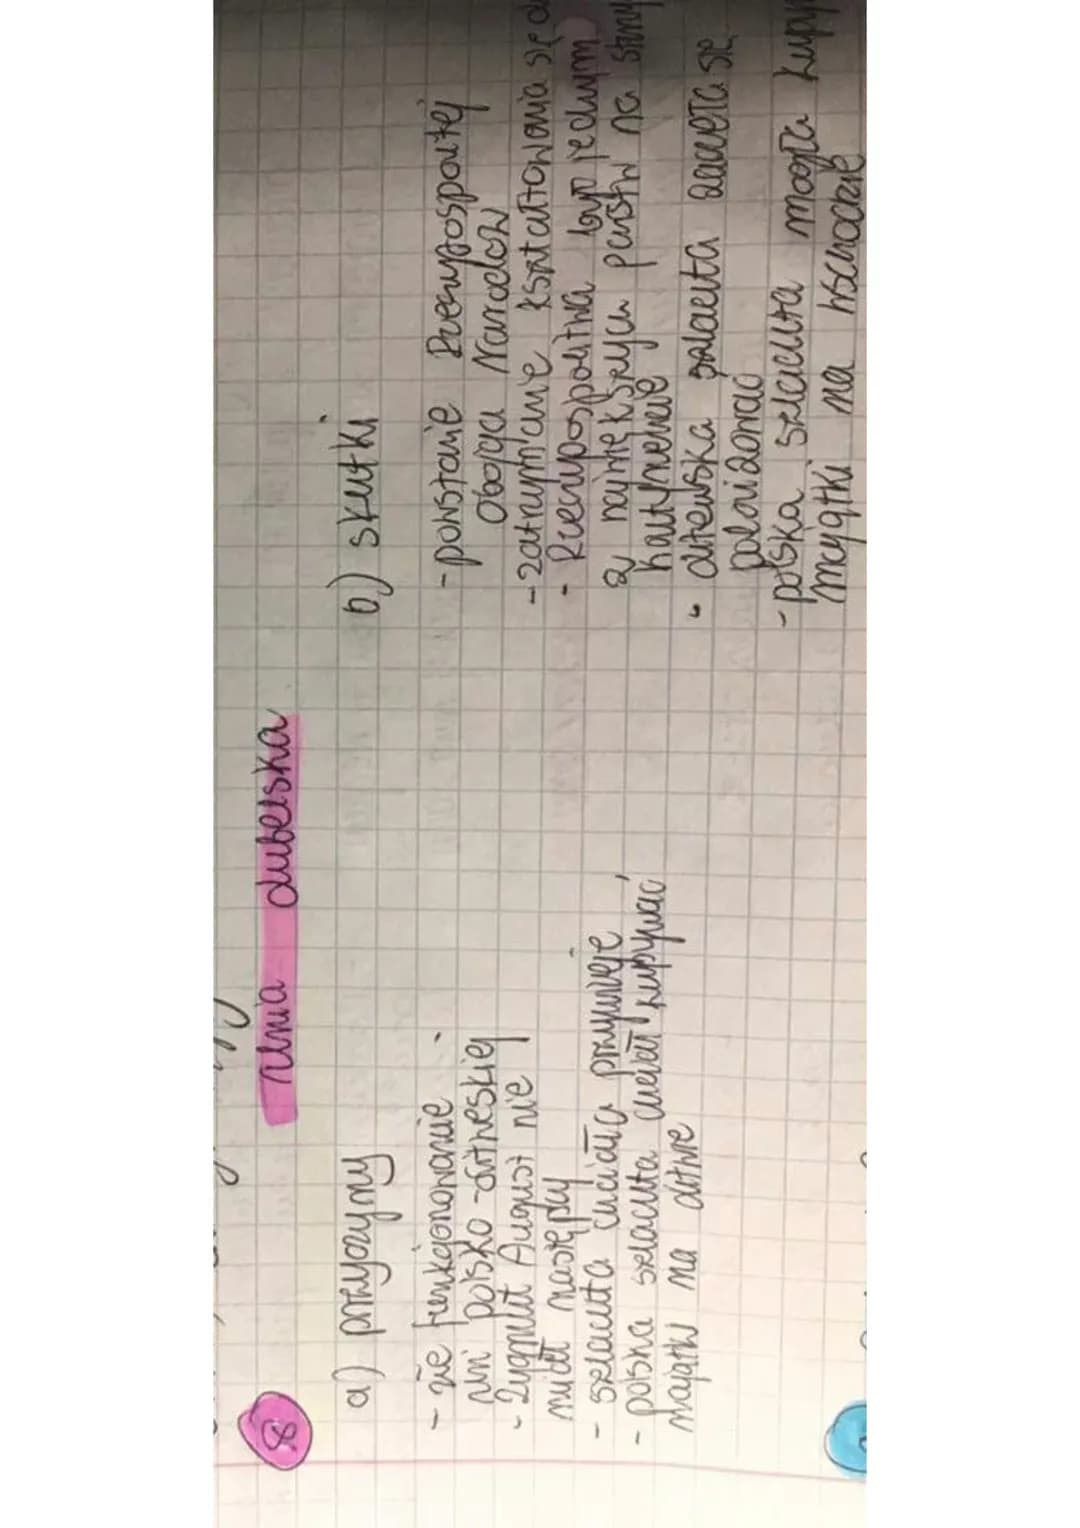 8 unia lubelska
a) przyczyny
- złe funkcjonowanie
unii polsko-litweskiej
- Zygmunt August nie
miał następcy
- szlachta chciała przywileje
- polska szlachta chciała kupywać
majątki na Litwie
b) skutki
- powstanie Rzeczypospolitej
Obojga Narodów
- zatrzymanie kształtowania się
- Rzeczpospolita był jednym
z największych państw na
kontynencie
- litewska szlachta zaczęła się
polonizować
- polska szlachta mogła
majątki na wschodzie